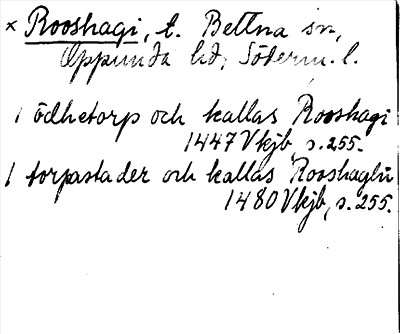 × Rooshagi, t. Bettna sn,
Oppunda hd, Söderm. l.
1 ödhetorp och kallas Rooshagi
1447 Vkjb, s. 255.
1 torpastader och kallas Rooshagin
1480 Vkjb, s. 255.